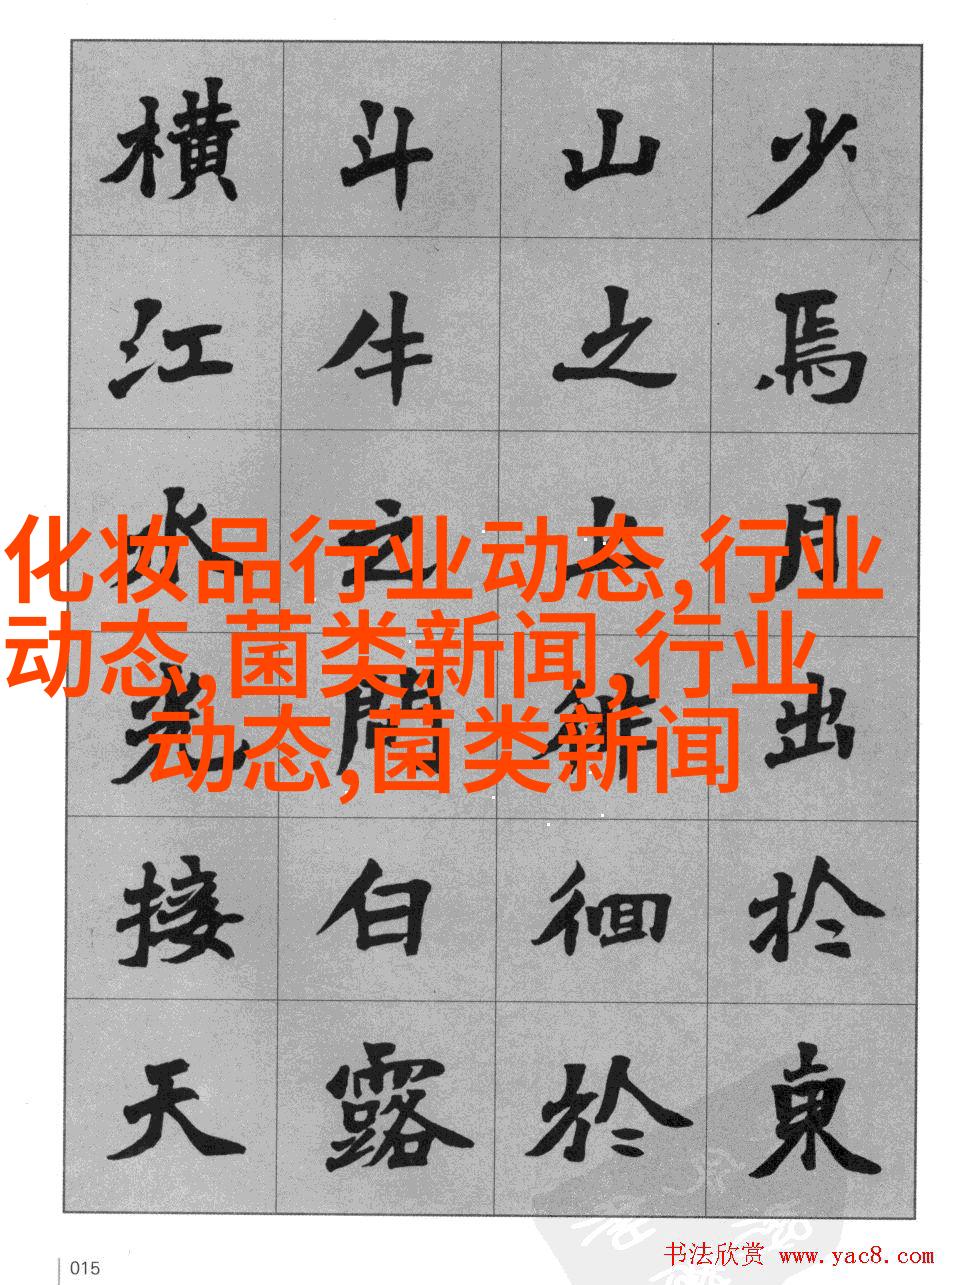 少焉月出於東
山之上徘徊於
斗牛之間白露
橫江水光接天
化妆品行业动态,行业
动态,菌类新闻,行业
动态,菌类新闻
015
书法欣赏 www.yac8.com